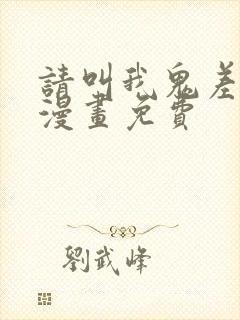 請叫我鬼差
漫畫免費
劉武峰